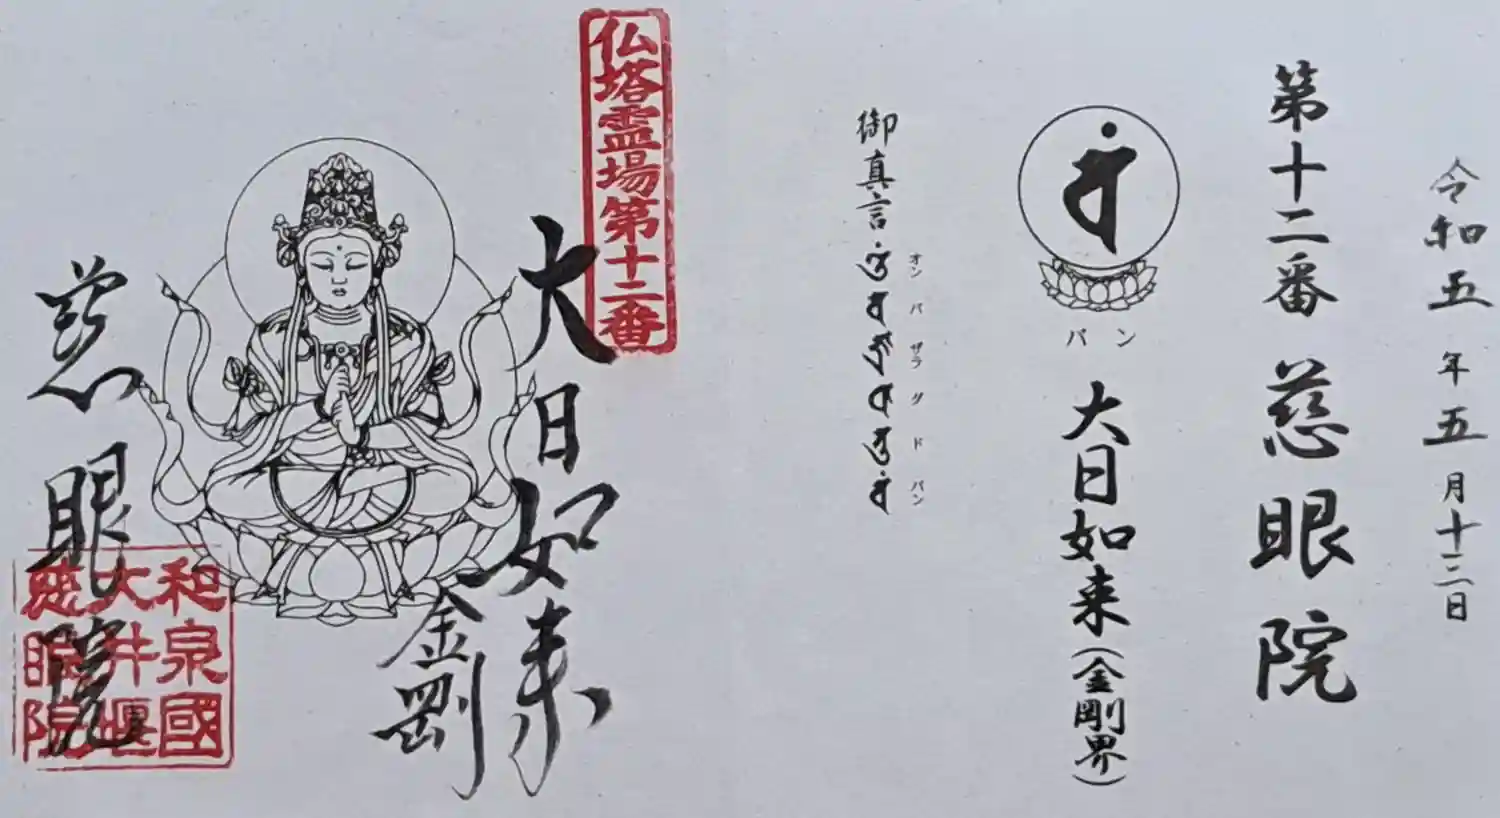 令和五年五月十三日
第十二番 慈眼院
バン
大日如来(金剛界)
御真言
オン バ ザラ ダ ド バン
仏塔霊場第十二番
大日如来
金剛
慈眼院
和泉國
大井堰
慈眼院